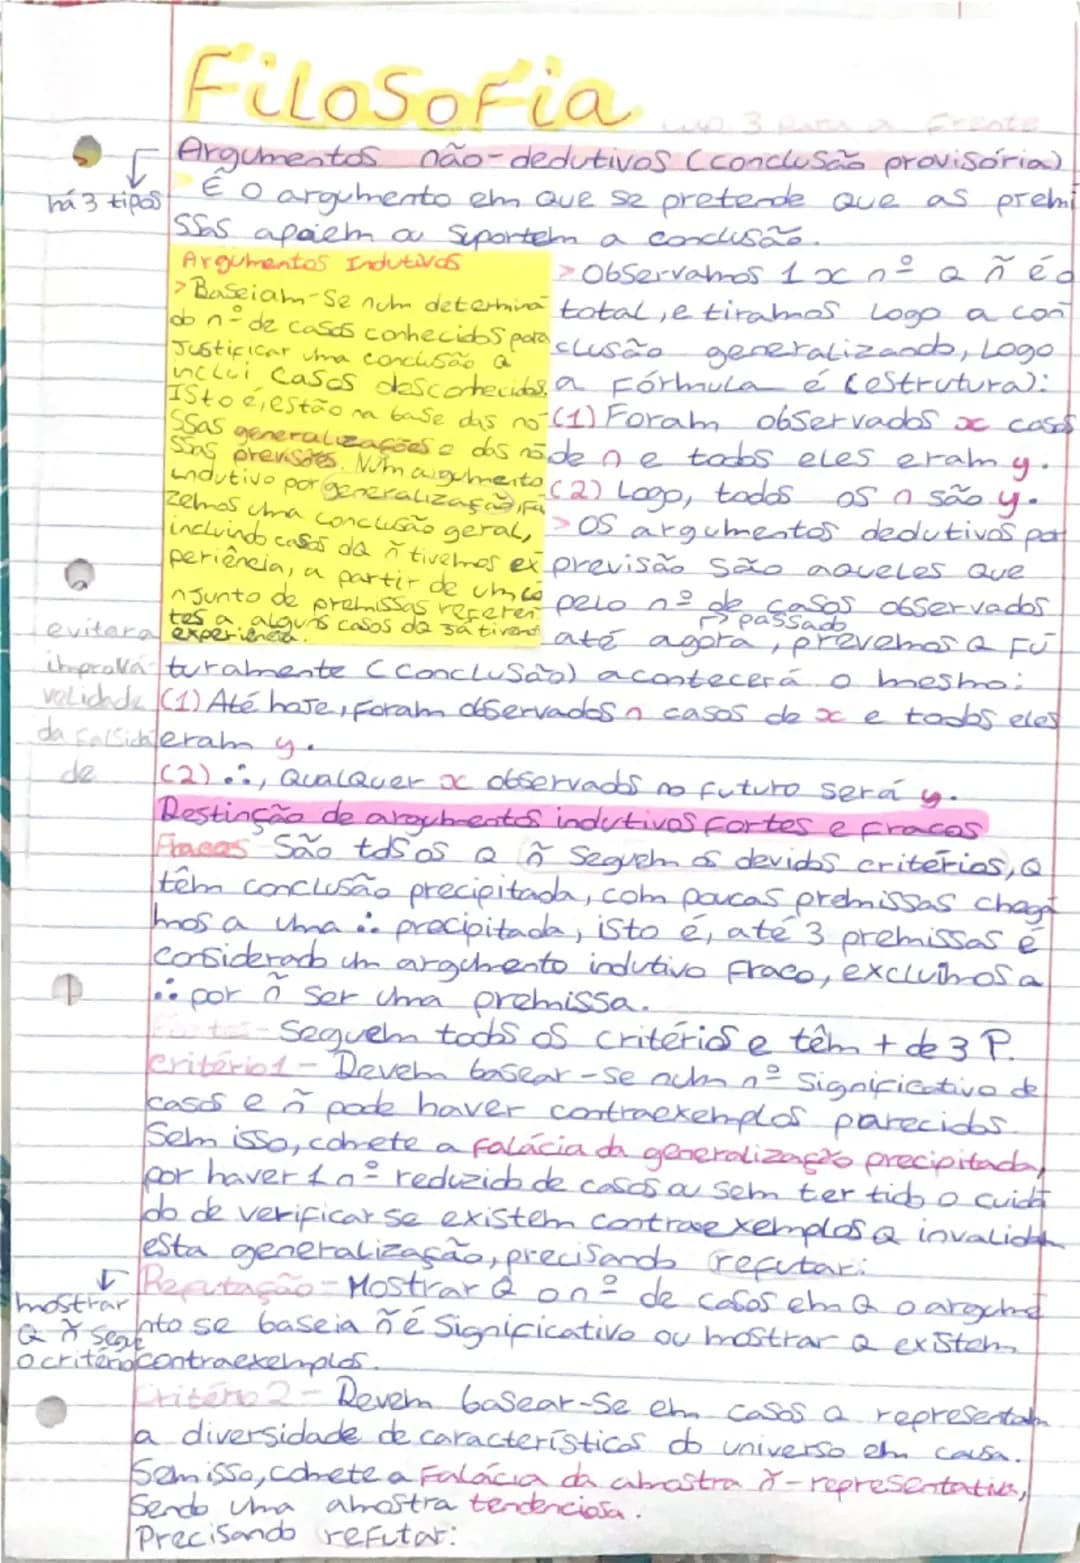 Filosofia
cap. 3 para a frente
Argumentos não-dedutivos (conclusão provisória)
há 3 tipos
É o argumento em que se pretende que as premi
ssas apoiem ou suportem a conclusão.
Argumentos Indutivos
> Baseiam-se num determina
do nº de casos conhecidos para
justificar uma conclusão q
inclui casos desconhecidos.
Isto é, estão na base das no
ssas generalizações e das no
ssas previsões. Num argumento
indutivo por generalização, fa
zemos uma conclusão geral,
incluindo casos dq ñ tivemos ex
periência, a partir de um co
njunto de premissas referen
tes a alguns casos dq já tivemos
experiência.
> Observamos 1 x nº q ñ é o
total, e tiramos logo a con
clusão generalizando, logo
a fórmula é (estrutura):
(1) Foram observados x casos
de n e todos eles eram y.
(2) Logo, todos os n são y.
> Os argumentos dedutivos por
previsão são aqueles que
pelo nº de casos observados
passado
até agora, prevemos q fu
turamente (conclusão) acontecerá o mesmo:
(1) Até hoje, foram observados n casos de x e todos eles
eram y.
(2) ∴, qualquer x observado no futuro será y.
evitar a
improva
validade
da falsida
de
Destinção de argumentos indutivos fortes e fracos
Fracos São tds os q ñ seguem os devidos critérios, q
têm conclusão precipitada, com poucas premissas chega
mos a uma ∴ precipitada, isto é, até 3 premissas é
considerado um argumento indutivo fraco, excluímos a
∴ por ñ ser uma premissa.
Fortes - Seguem todos os critérios e têm + de 3 P.
Critério 1 - Devem basear-se num nº significativo de
casos e ñ pode haver contraexemplos parecidos.
Sem isso, comete a falácia da generalização precipitada,
por haver 1 nº reduzido de casos ou sem ter tido o cuida
do de verificar se existem contraexemplos q invalidam
esta generalização, precisando refutar:
Refutação - Mostrar q o nº de casos em q o argume
nto se baseia ñ é significativo ou mostrar q existem
contraexemplos.
mostrar
q ñ segue
o critério
Critério 2 - Devem basear-se em casos q representam
a diversidade de características do universo em causa.
Sem isso, comete a falácia da amostra ñ-representativa,
sendo uma amostra tendenciosa.
Precisando refutar: